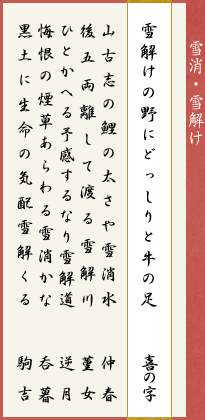 雪消・雪解け
雪解けの野にどっしりと牛の足　喜の字
山古志の鯉の太さや雪消水　仲春
後五両離して渡る雪解川　菫女
ひとかへる予感するなり雪解道　逆月
悔恨の煙草あらわる雪消かな　呑暮
黒土に生命の気配雪解くる　駒吉